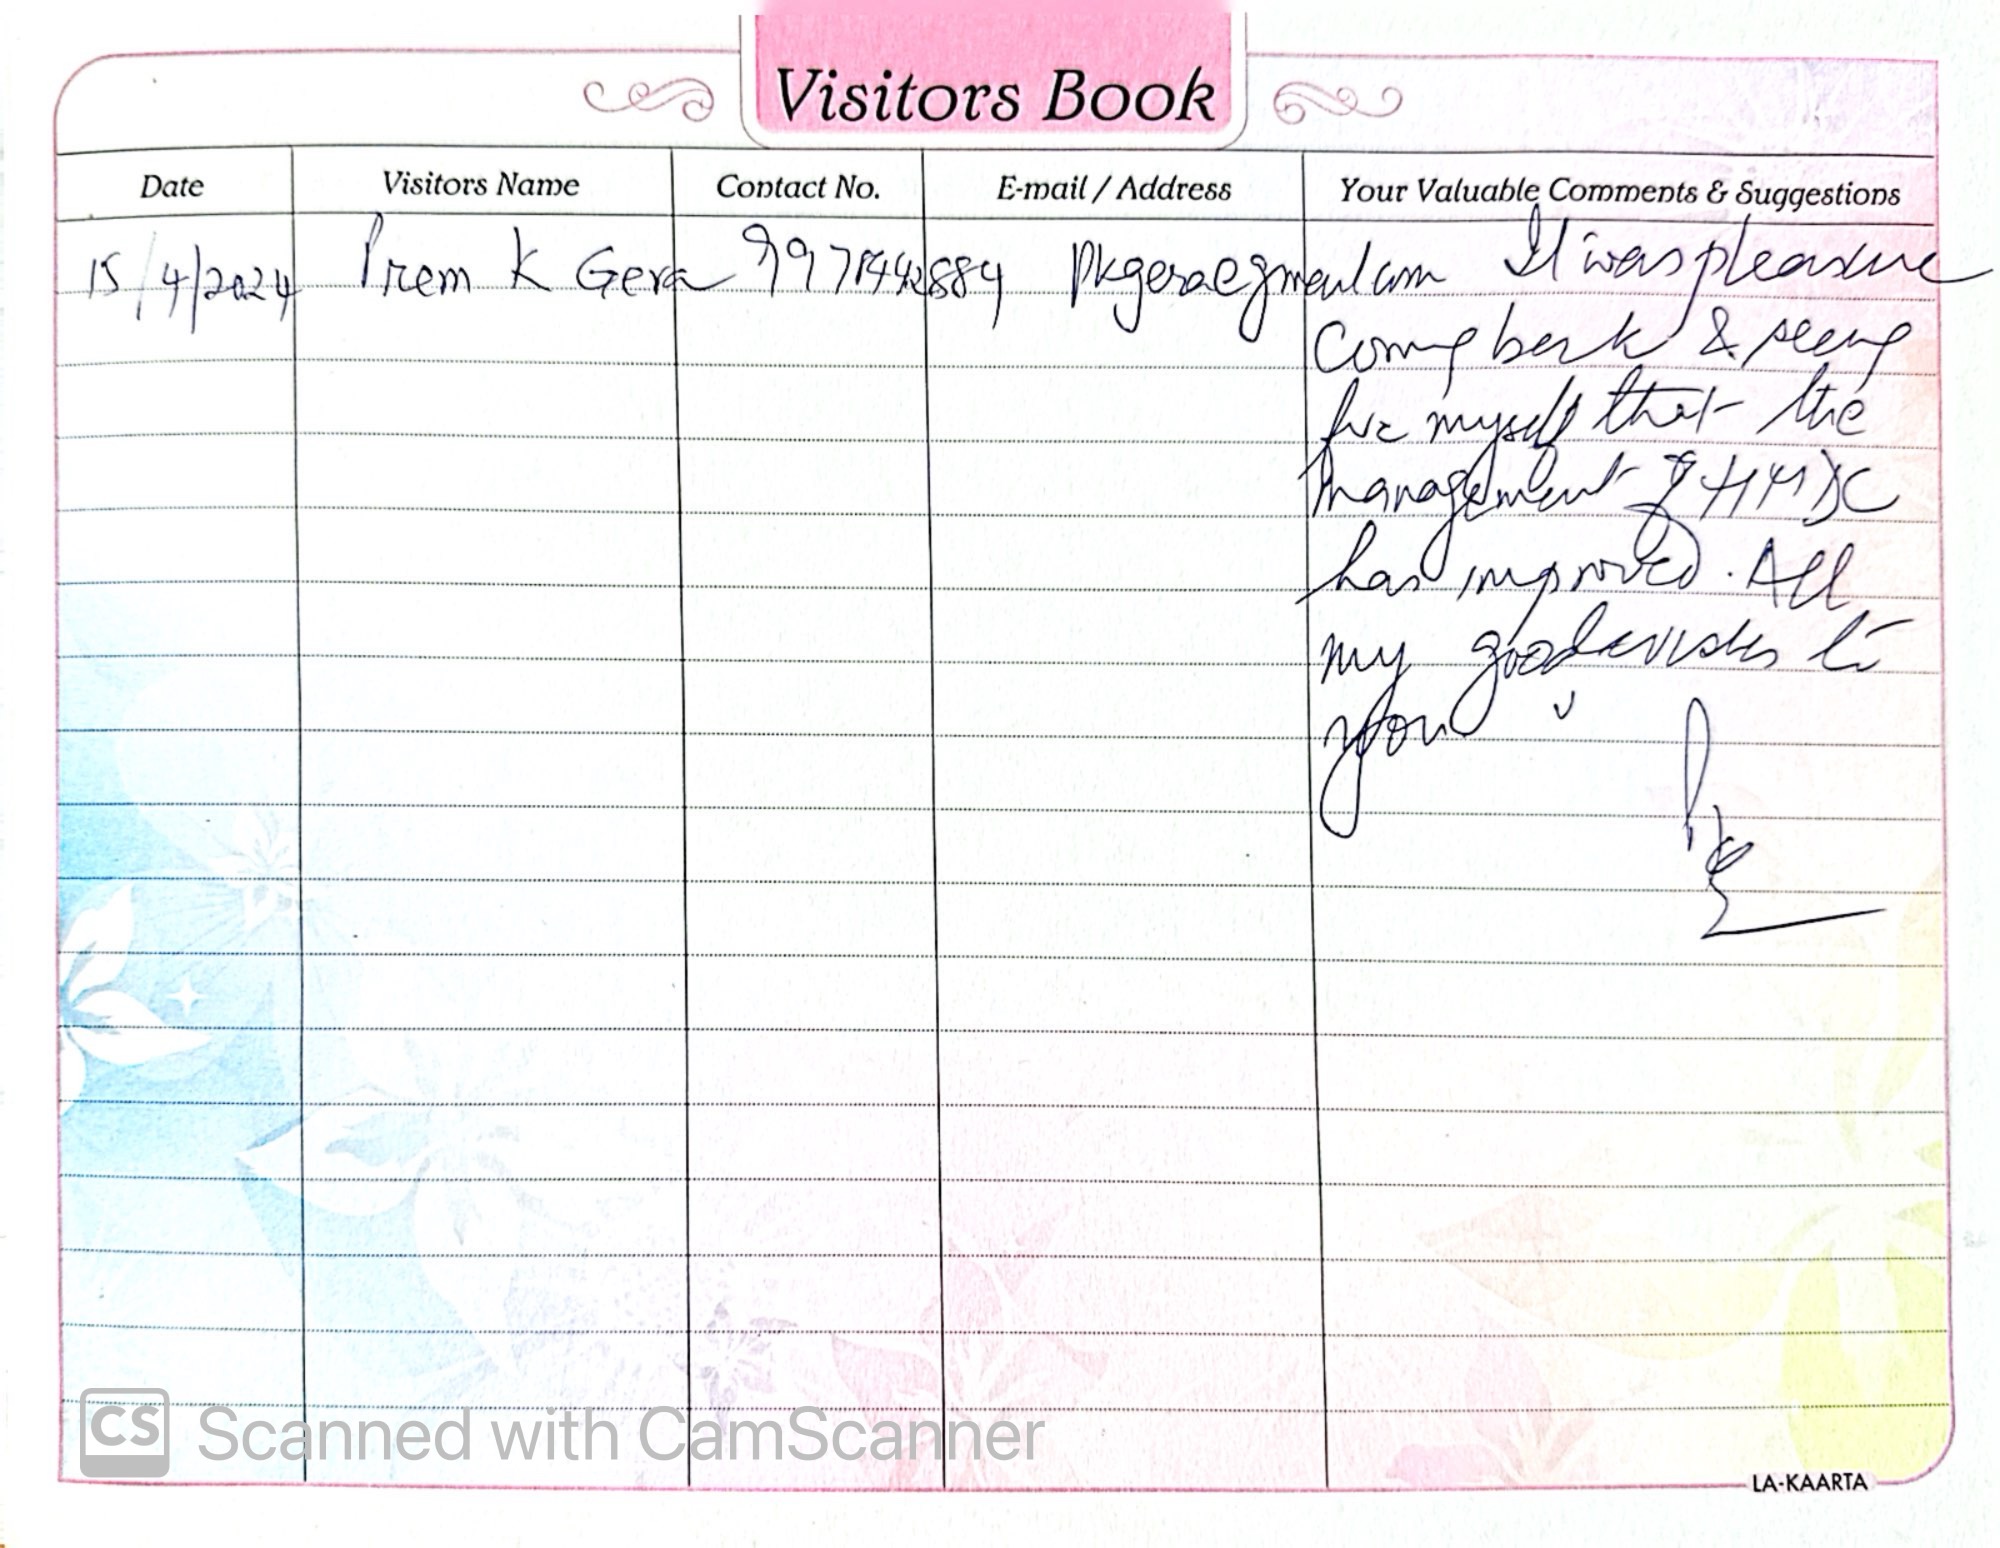 Visitors Book
Date Visitors Name Contact No. E-mail / Address Your Valuable Comments & Suggestions
15/4/2024 Prem K Gera It was pleasure
Coming back & seeing
for myself that the
management of HMDC
has improved. All
my good wishes to
you
CS Scanned with CamScanner
LA-KAARTA